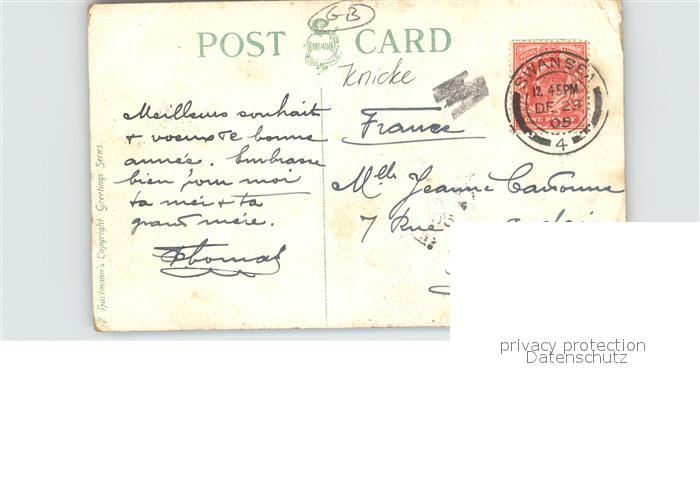 GB
POST CARD
HARTMANN
Knicke
SWANSEA
12.45PM
DE 29
05
4
Meilleurs souhait
+ voeux de bonne
année. Embrasse
bien pour moi
ta mère + ta
grand mère.
Thomas
France
Mlle Jeanne
7 Rue
F. Hartmann's Copyright Greetings Series.
privacy protection
Datenschutz